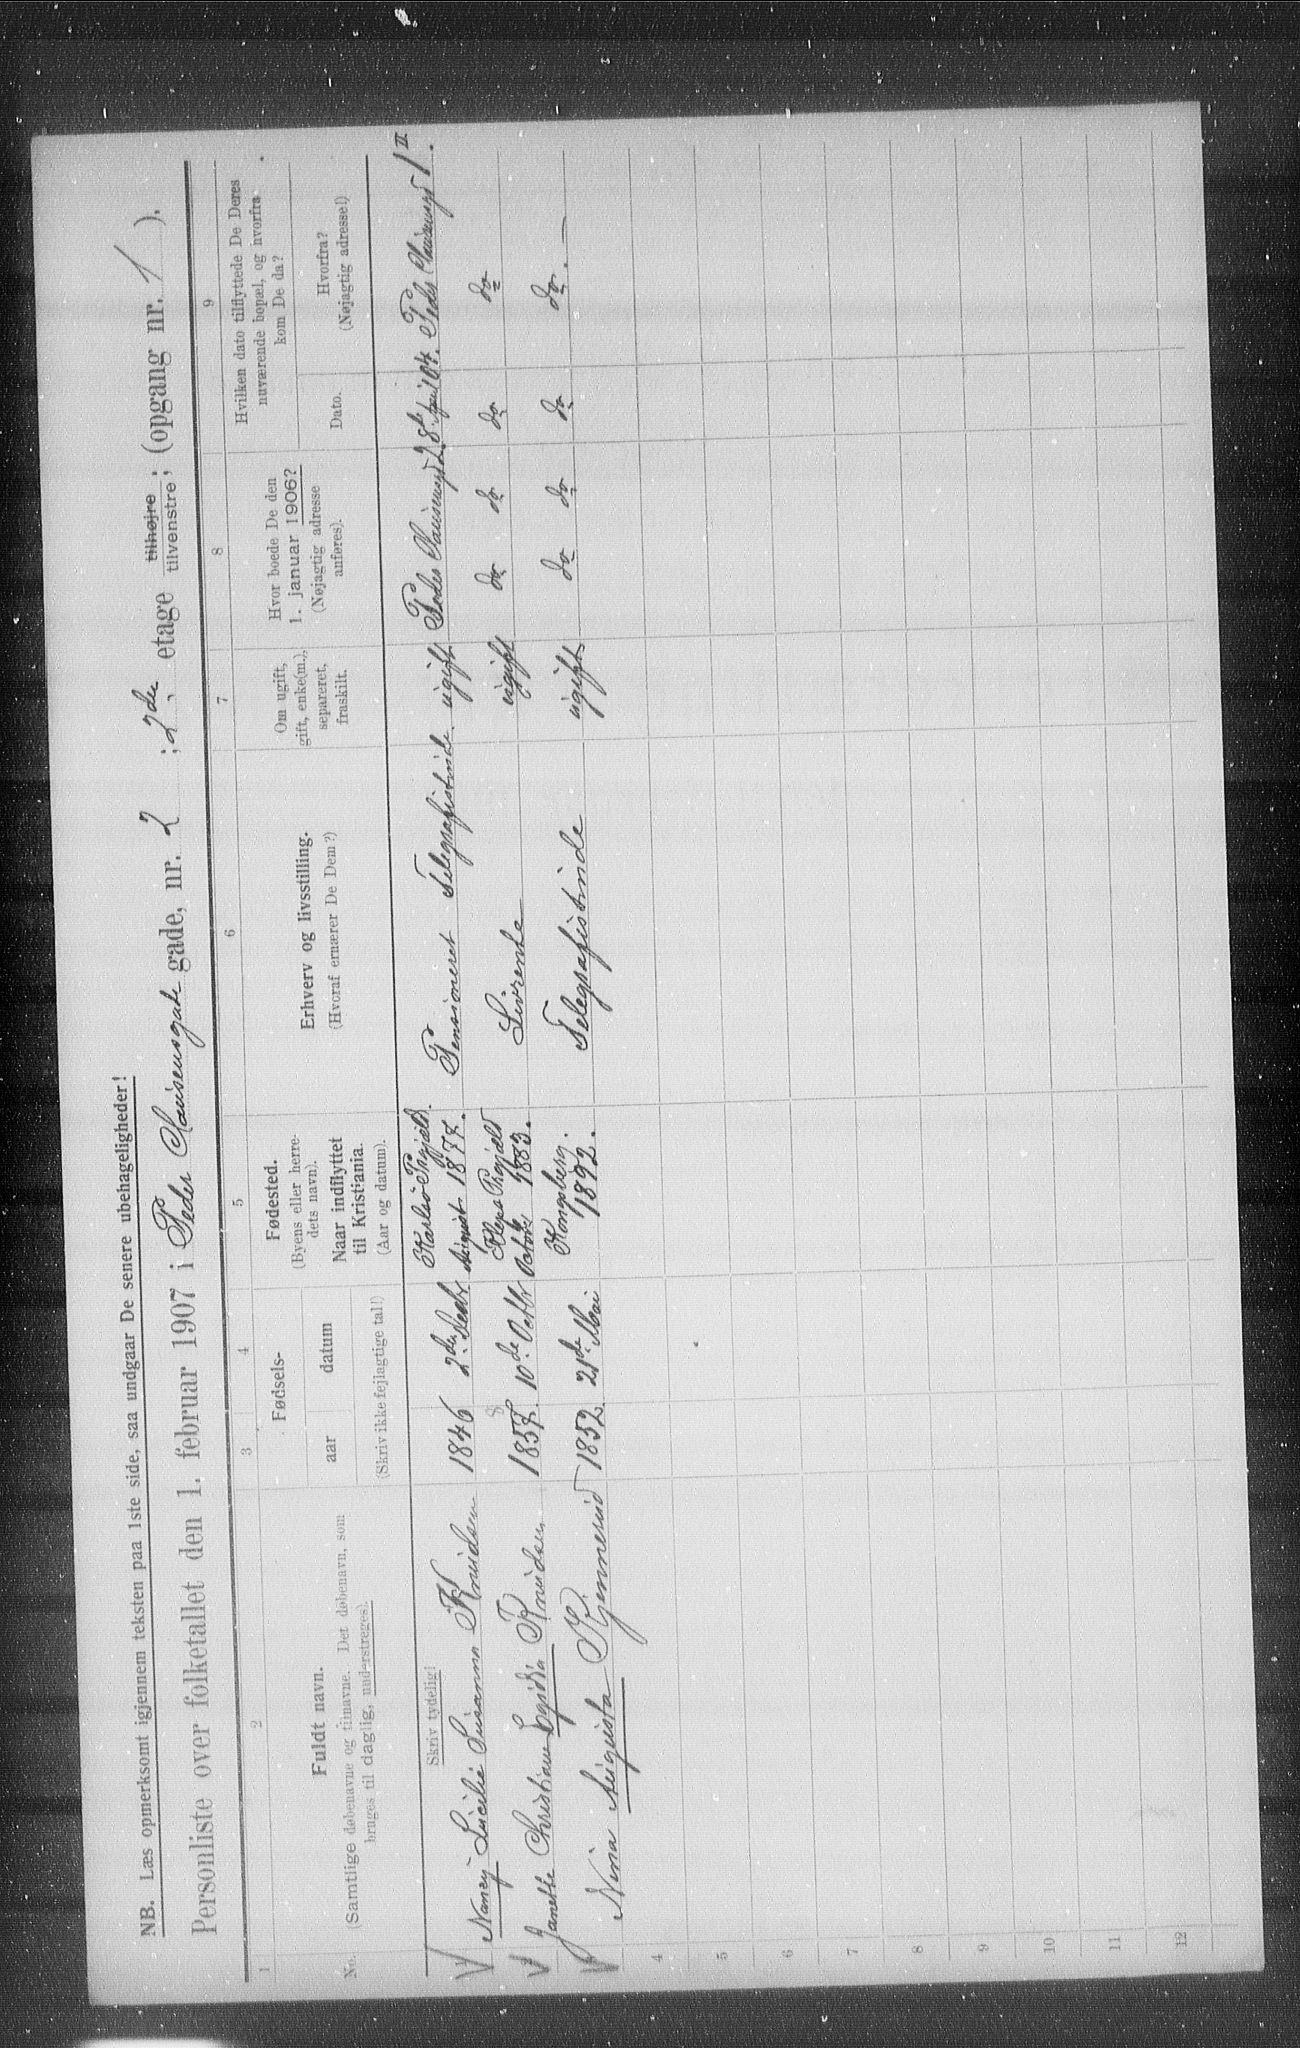 NB. Læs opmerksomt igjennem teksten paa 1ste side, saa undgaar De senere ubehageligheder!
Personliste over folketallet den 1. februar 1907 i Peder Clausensgate gade, nr. 2 ; 2den etage tilhøjre tilvenstre ; (opgang nr. 1 ).
1 2 3 4 5 6 7 8 9
No.
Fuldt navn.
(Samtlige døbenavne og tilnavne. Det døbenavn, som
bruges til daglig, understreges).
Fødsels-
aar datum
(Skriv ikke fejlagtige tal!)
Fødested.
(Byens eller herre-
dets navn).
Naar indflyttet
til Kristiania.
(Aar og datum).
Erhverv og livsstilling.
(Hvoraf ernærer De Dem?)
Om ugift,
gift, enke(m.),
separeret,
fraskilt.
Hvor boede De den
1. januar 1906?
(Nøjagtig adresse
anføres).
Hvilken dato tilflyttede De Deres
nuværende bopæl, og hvorfra
kom De da?
Dato.
Hvorfra?
(Nøjagtig adresse!)
Skriv tydelig!
Nancy Lucilie Susanna Knudsen 1846 2den Decbr Karlsø Prgjæld. August 1877. Pensioneret Telegrafistinde ugift Peder Clausensgd 2. 8de April 04. Peder Clausensgd 1 II.
Janette Christiane Egidia Knudsen 1857. 8 10de Octbr Prgjæld Octobr 1883. Livrente ugift do do do do
Nina Augusta Gjennerud 1852. 21de Mai Kongsberg. 1892. Telegrafistinde ugift do do do do. —
4
5
6
7
8
9
10
11
12